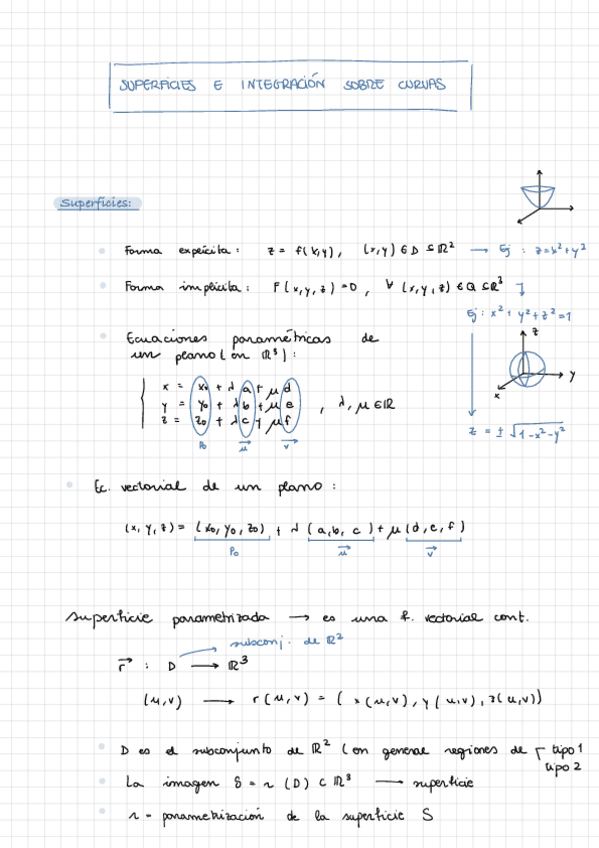 SUPERFICIES E INTEGRACIÓN SOBRE CURVAS
Superficies:
Forma explícita: z = f(x,y), (x,y) ∈ D ⊆ ℝ² → Ej: z=x²+y²
Forma implícita: F(x,y,z)=0, ∀ (x,y,z) ∈ Q ⊆ ℝ³
Ej: x²+y²+z²=1
z
y
x
z = ± √1-x²-y²
Ecuaciones paramétricas de
un plano (en ℝ³):
x = x₀ + λ a + μ d
y = y₀ + λ b + μ e , λ, μ ∈ ℝ
z = z₀ + λ c y μ f
P₀ u⃗ v⃗
Ec. vectorial de un plano:
(x, y, z) = (x₀, y₀, z₀) + λ (a, b, c) + μ (d, e, f)
P₀ u⃗ v⃗
Superficie parametrizada → es una f. vectorial cont.
subconj. de ℝ²
r⃗ : D → ℝ³
(u,v) → r(u,v) = (x(u,v), y(u,v), z(u,v))
D es el subconjunto de ℝ² (en general regiones de tipo 1
tipo 2
La imagen S = r (D) ⊂ ℝ³ → superficie
r - parametrización de la superficie S